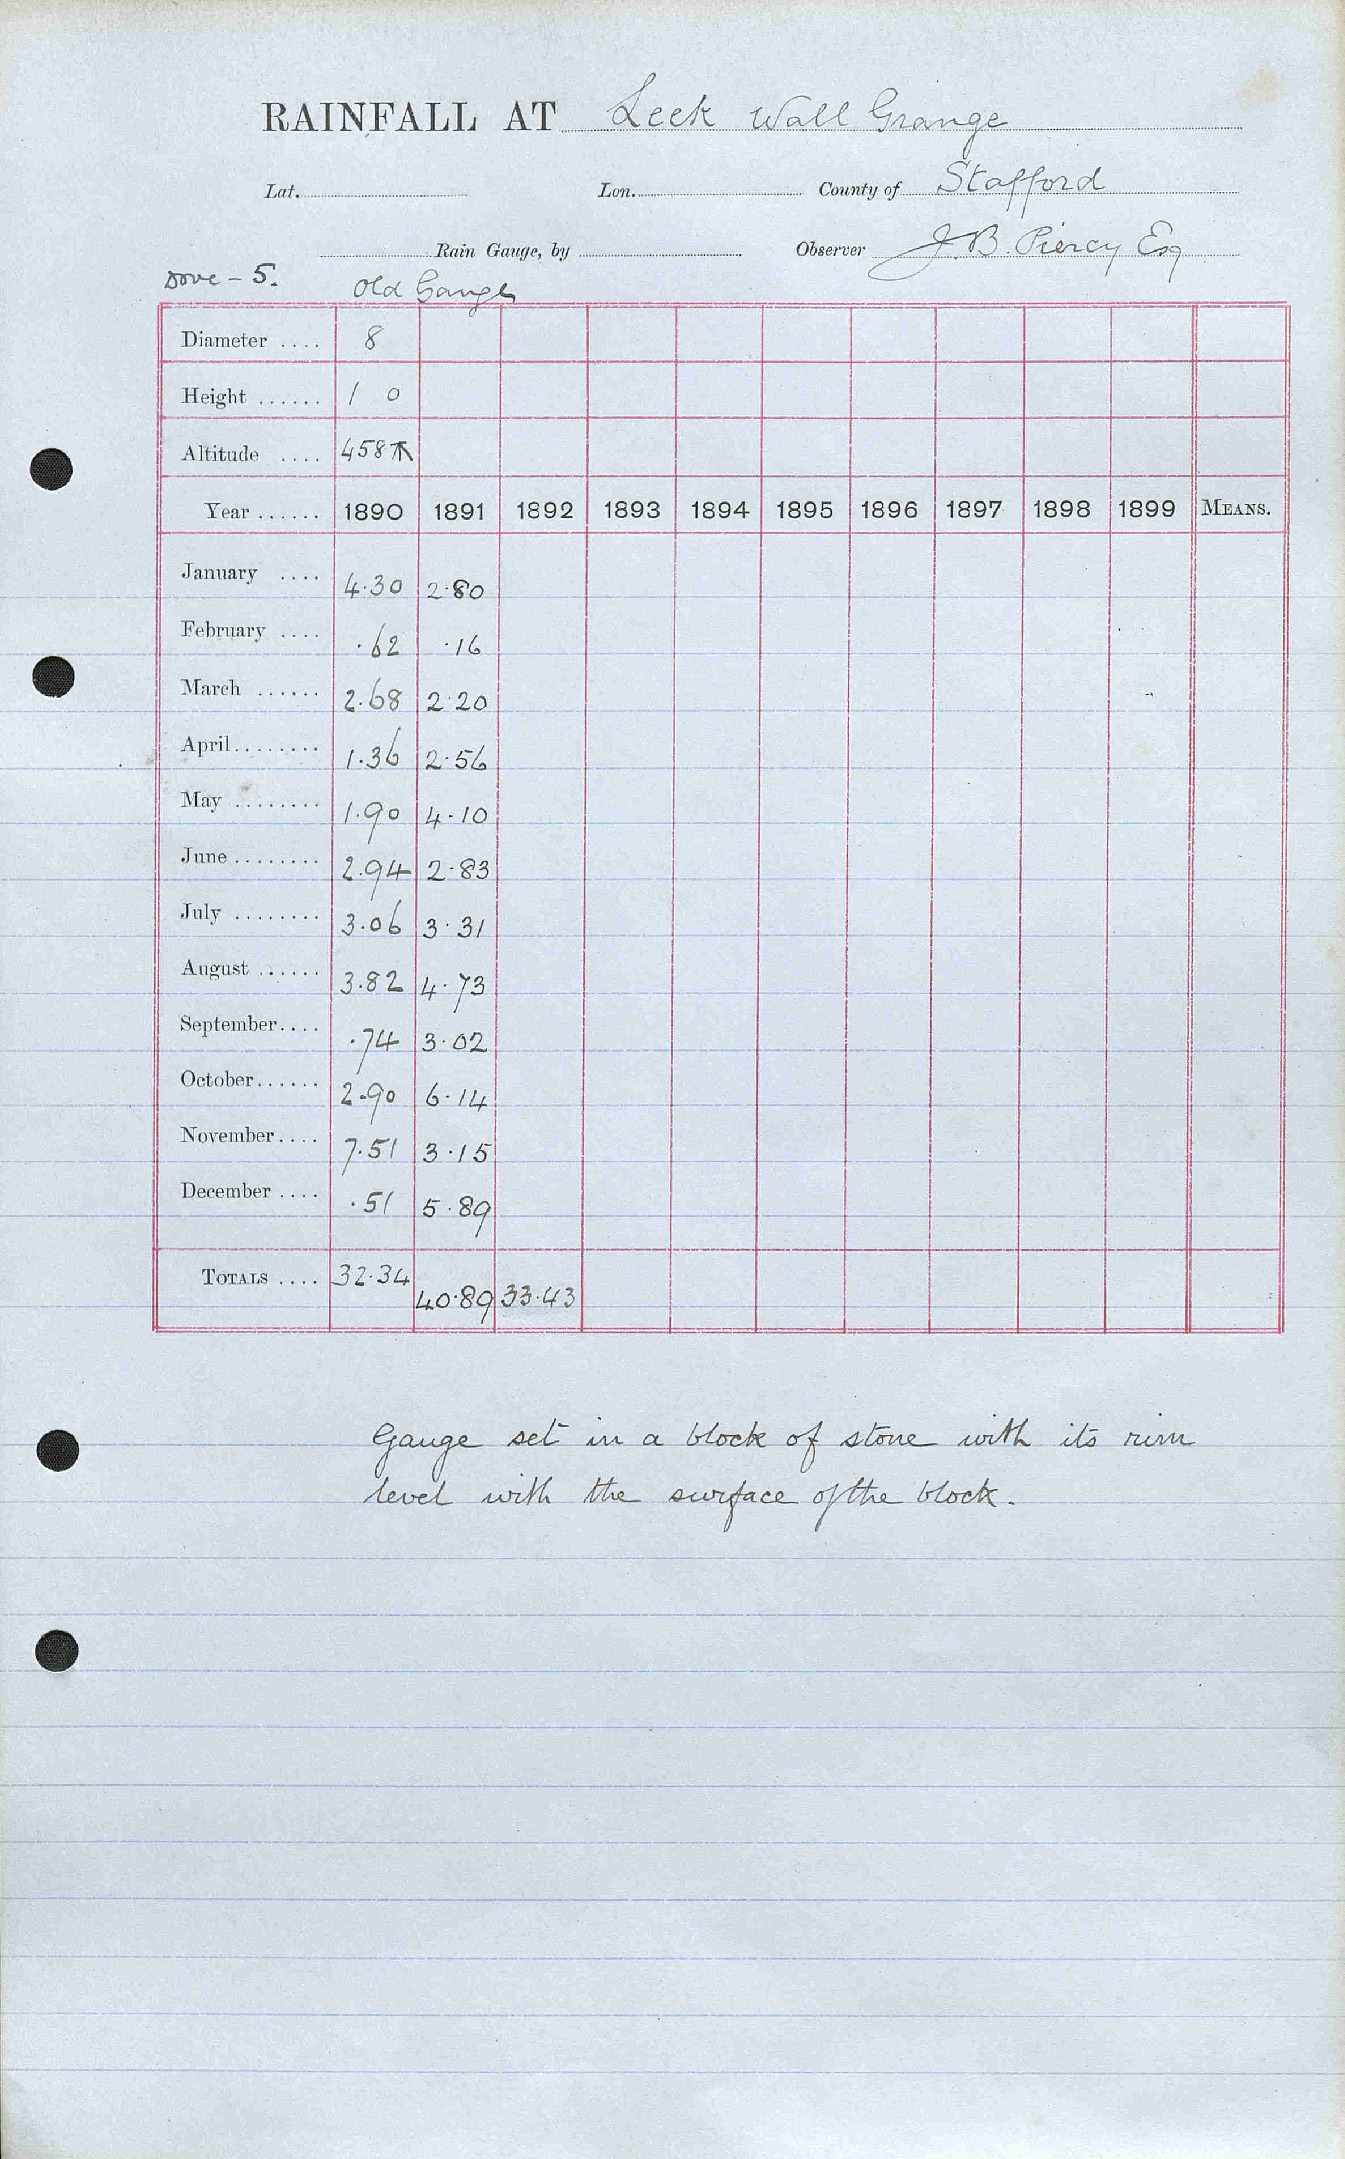 RAINFALL AT Leek Wall Grange
Lat. Lon. County of Stafford
Rain Gauge, by Observer J.B. Piercy Esq
Dove - 5. Old Gauge
Diameter .... 8
Height ...... 1 0
Altitude .... 458
Year ...... 1890 1891 1892 1893 1894 1895 1896 1897 1898 1899 MEANS.
January .... 4.30 2.80
February .... .62 .16
March ...... 2.68 2.20
April........ 1.36 2.56
May ........ 1.90 4.10
June ........ 2.94 2.83
July ........ 3.06 3.31
August ...... 3.82 4.73
September.... .74 3.02
October...... 2.90 6.14
November.... 7.51 3.15
December .... .51 5.89
TOTALS .... 32.34 40.89 33.43
Gauge set in a block of stone with its rim
level with the surface of the block.